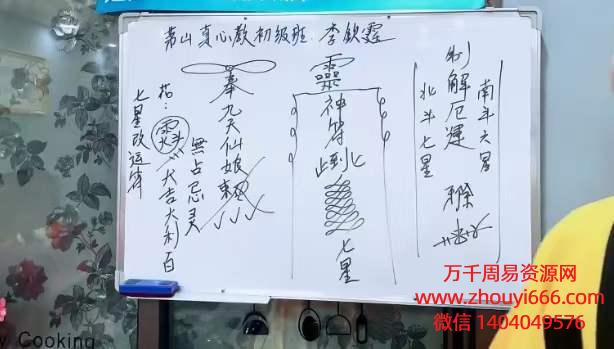 茅山真心教初级班 李钦霆
七星改运符
奉九天仙娘敕
無占忌灵
大吉大利百
靈
神符到此
七星
制
解厄运
北斗七星
南斗六星
万千周易资源网
www.zhouyi666.com
微信 1404049576
y Cooking